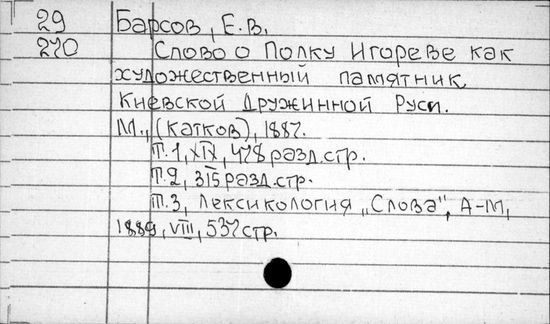 29 Барсов, Е.В.
270 Слово о Полку Игореве как
художественный памятник
Киевской Дружинной Руси.
М., (Катков), 1887.
Т.1, XIX, 478 разд.стр.
Т.2, 315 разд.стр.
Т.3, Лексикология „Слова", А-М,
1889, VIII, 537 стр.